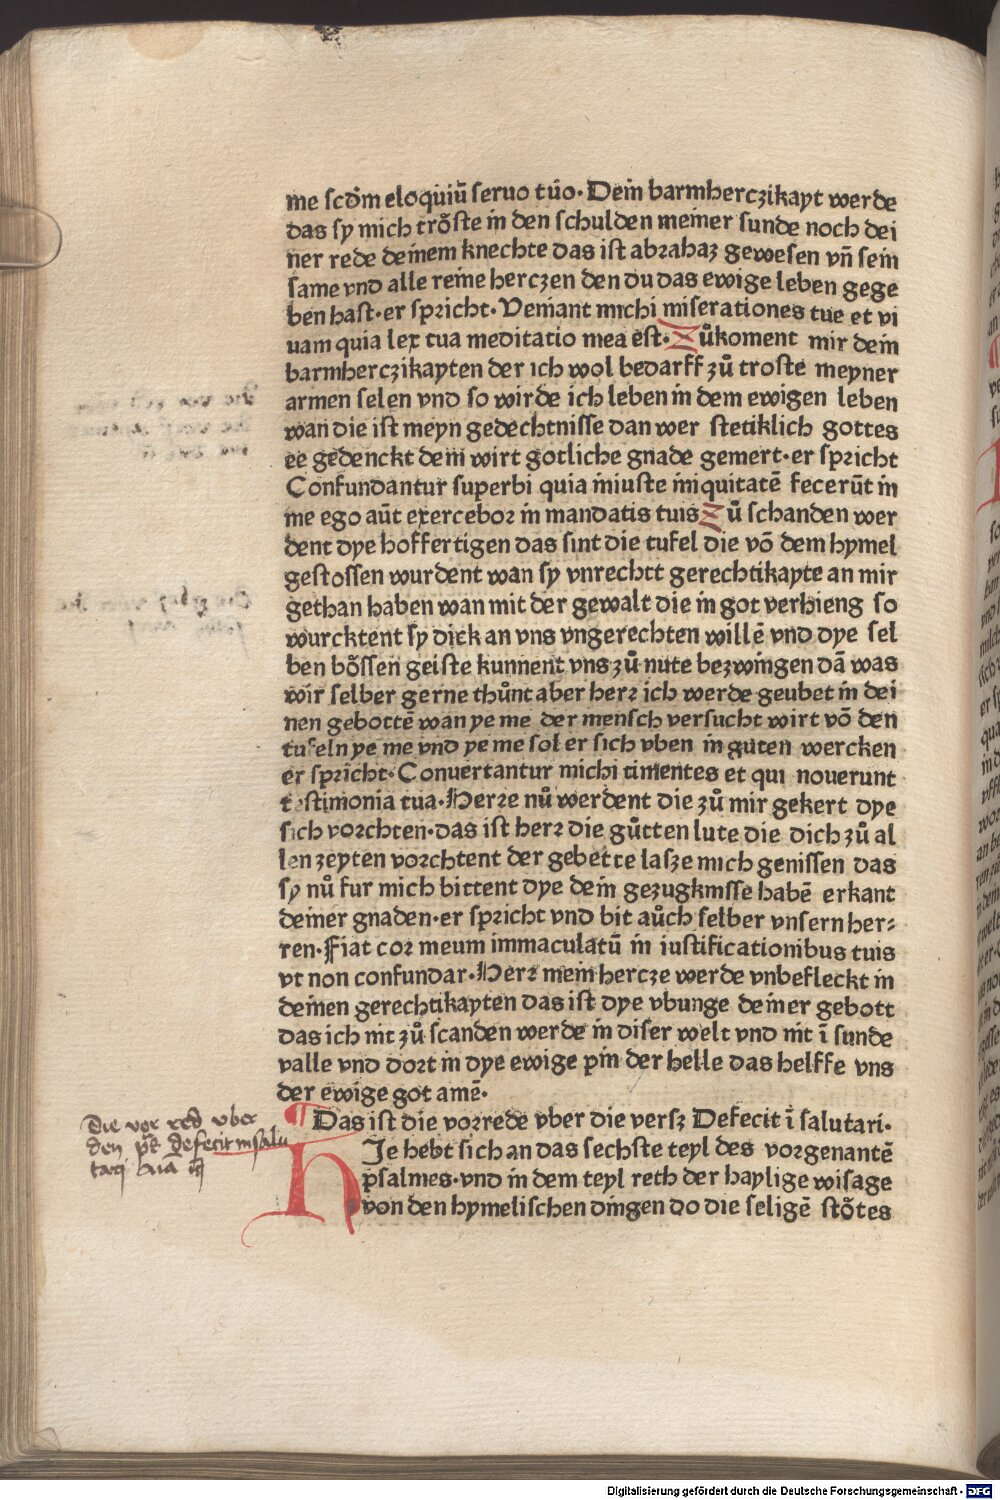 me scd̄m eloquiū seruo tůo· Dein barmherczikayt werde
das sy mich trőste in den schulden meiner sunde noch dei
ner rede deinem knechte das ist abrahaz gewesen vn̄ sein
same vnd alle reine herczen den du das ewige leben gege
ben hast·er spricht· Veniant michi miserationes tue et vi
uam quia lex tua meditatio mea est· Zůkoment mir dein
barmherczikayten der ich wol bedarff zů troste meyner
armen selen vnd so wirde ich leben in dem ewigen leben
wan die ist meyn gedechtnisse dan wer stetiklich gottes
ee gedenckt dem wirt gotliche gnade gemert·er spricht
Confundantur superbi quia iniuste iniquitatē fecerūt in
me ego aūt exercebor in mandatis tuis Zů schanden wer
dent dye hoffertigen das sint die tufel die vō dem hymel
gestossen wurdent wan sy vnrechtt gerechtikayte an mir
gethan haben wan mit der gewalt die in got verhieng so
wurcktent sy dick an vns vngerechten willē vnd dye sel
ben bőssen geiste kunnent vns zů nute bezwingen dā was
wir selber gerne thůnt aber herr ich werde geubet in dei
nen gebottē wan ye me der mensch versucht wirt vō den
tufeln ye me vnd ye me sol er sich vben in guten wercken
er spricht· Conuertantur michi timentes et qui nouerunt
testimonia tua· Herre nů werdent die zů mir gekert dye
sich vorchten·das ist herr die gůtten lute die dich zů al
len zeyten vorchtent der gebette lasze mich genissen das
sy nů fur mich bittent dye dein gezugknisse habē erkant
deiner gnaden·er spricht vnd bit aůch selber vnsern her⸗
ren· Fiat cor meum immaculatū in iustificationibus tuis
vt non confundar· Herr mein hercze werde vnbefleckt in
deinen gerechtikayten das ist dye vbunge deiner gebott
das ich nit zů scanden werde in diser welt vnd nit ī sunde
valle vnd dort in dye ewige pin der helle das helffe vns
der ewige got amē·
¶ Das ist die vorrede vber die versz Defecit ī salutari·
HJe hebt sich an das sechste teyl des vorgenantē
psalmes·vnd in dem teyl reth der haylige wisage
von den hymelischen dingen do die seligē stőtes
Die vor red vber
den ps Defecit in salu
Digitalisierung gefördert durch die Deutsche Forschungsgemeinschaft · DFG